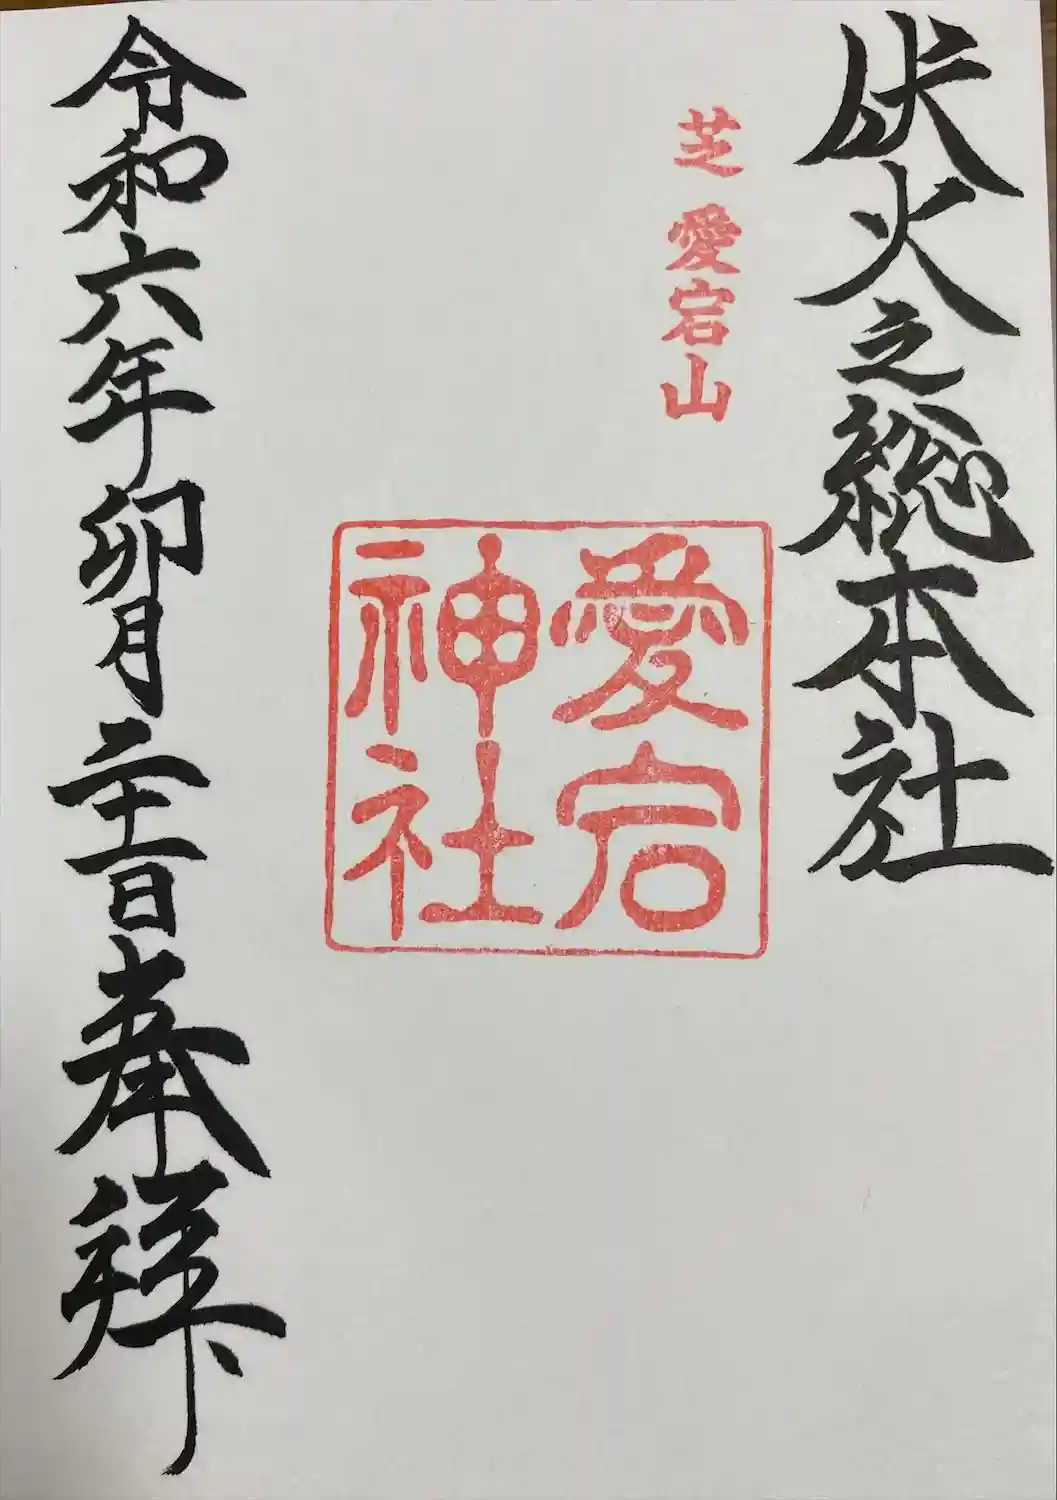 伏火之總本社
芝 愛宕山
愛宕
神社
令和六年卯月二十一日奉拜